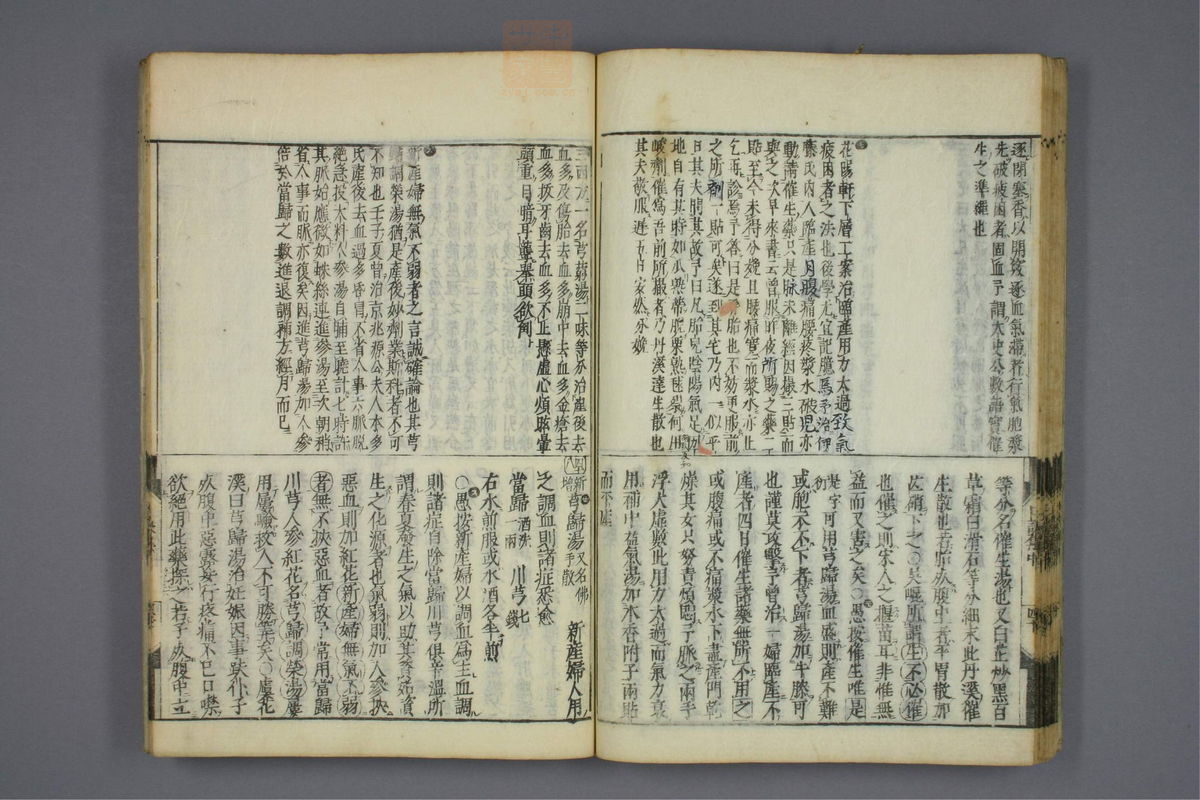 逐閉塞香以開竅逐血氣滯者行氣胞漿
先破疲困者固血予謂太史公數語實催
生之準繩也
花陽軒下層工案治臨產用力太過致氣
疲困者之法也後學尤宜記臆焉予治伊
藤氏內人臨產月腹痛腰疼漿水破兒亦
動請催生藥只是脉未離經因撮三貼而
與之次早來書云曾服昨夜所賜之藥二
貼至今未得分娩且腰痛實而漿水亦止
乞再診焉予答曰是
胎也不効更服前
之所劑一貼可矣遂到其宅乃內一似乎
曰其夫問其故予曰凡胎兒陰陽氣足
地自有其時如瓜熟蒂脫栗熟
何用
峻劑催焉吾前所撮者乃丹溪達生散也
其夫敬服遲五日安然分娩
等分名催生湯也又白芷炒黑百
草霜白滑石等分細末此丹溪催
生散也若胎死腹中者平胃散加
芒硝下之○吳崑所謂生不必催
也催之則宋人之揠苗耳非惟無
益而又害之矣○愚按催生唯是
或胞不下者芎歸湯加牛膝可
芎字可用芎歸湯血盛則產不難
也謹莫攻擊予曾治一婦臨產不
產者四日催生諸藥無所不用之
或腹痛或不痛漿水下盡產門乾
燥其女只努責煩悶予脉之兩手
浮大虛數此用力太過而氣力衰
用補中益氣湯加木香附子兩貼
而平產
三兩方一名芎藭湯二味等分治產後去
血多及傷胎去血多崩中去血多金瘡去
血多拔牙齒去血多不止懸虛心煩眩暈
頭重目暗耳聾舉頭欲倒
新產婦無氣不弱者之言誠確論也其芎
歸調榮湯猶是產後妙劑業斯科者不可
不知也壬子夏曾治京兆源公夫人本多
氏產後去血過多昏冒不省人事六脉脫
絕急投大料人參湯自酺至曉計七時許
其脉始應微如蛛絲連進參湯至次朝稍
省人事而脉亦復矣因進芎歸湯加人參
倍於當歸之數進退調補方經月而已
四八 新增 芎歸湯 又名佛手散 新產婦人用
之調血則諸症悉愈
當歸 酒洗一兩 川芎 七錢
右水煎服或水酒各半煎
○愚按新產婦以調血為主血調
則諸症自除當歸川芎俱辛溫所
謂春夏發生之氣以助其養始資
生之化源者也氣弱則加人參挾
惡血則加紅花新產婦無氣不弱
者無不挾惡血者故予常用當歸
川芎人參紅花名芎歸調榮湯屢
用屢驗救人不可勝筭矣○虛花
溪曰芎歸湯治妊娠因事跌仆子
死腹中惡露妄行疼痛不已口噤
欲絕用此藥探之若子死腹中立